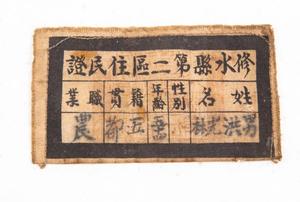 修水縣第二區住民證
姓名 性別 年齡 籍貫 職業
男洪光林 五都 農